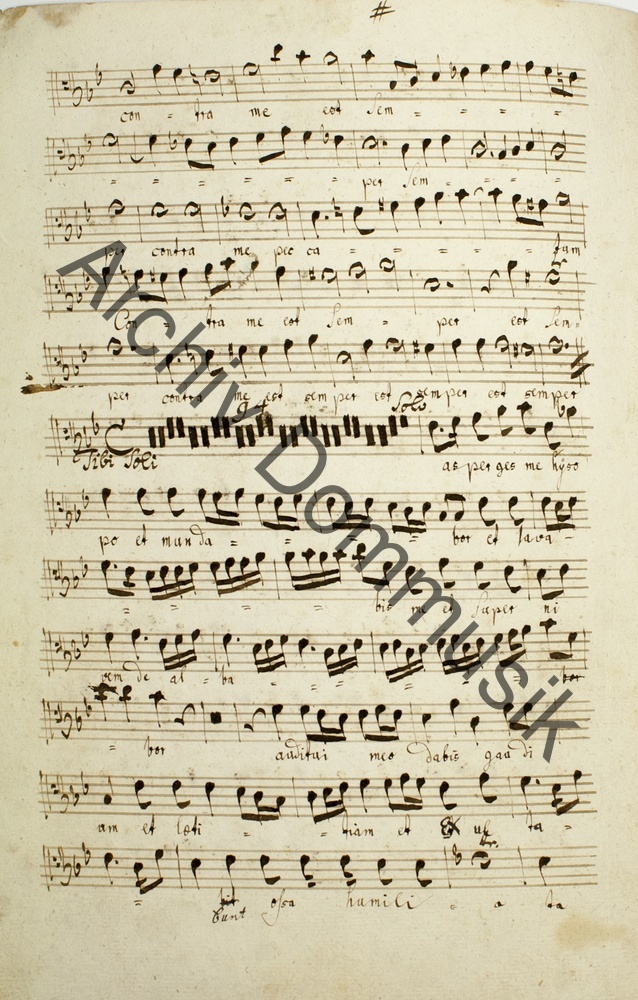 con - tra me est sem - - - -
- - - - - - per sem - - - -
per contra me pec ca - - - - tum
Con - tra me est sem - per est sem-
per contra me est sem per est semper est semper
Tibi Soli Solo as per ges me hyso
po et mun da - - - bor et lava -
- - - - bis me et super ni
vem de al - ba - - - - bor
- bor auditui meo dabis gau di
am et læti - - tiam et Ex ul ta -
- - bunt ossa humili - a ta
Archiv Dommusik